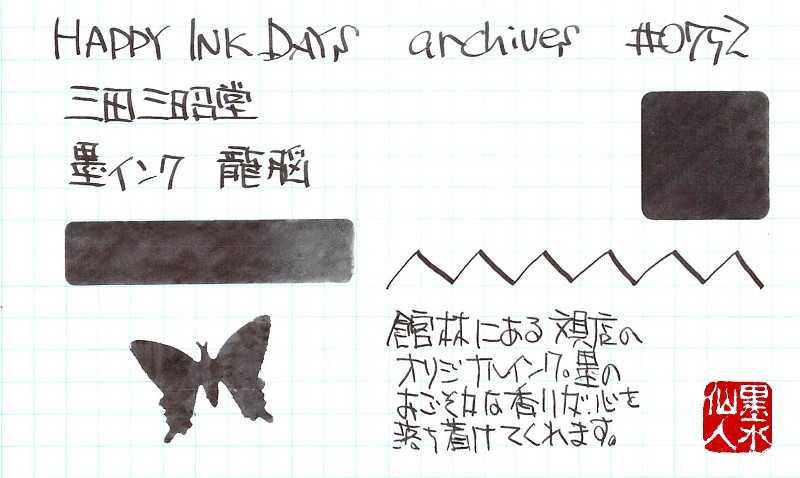 HAPPY INK DAYS archives #0752
三田三昭堂
墨インク 龍脳
館林にある文具店の
オリジナルインク。墨の
おごそかな香りが心を
落ち着けてくれます。
墨水
仙人